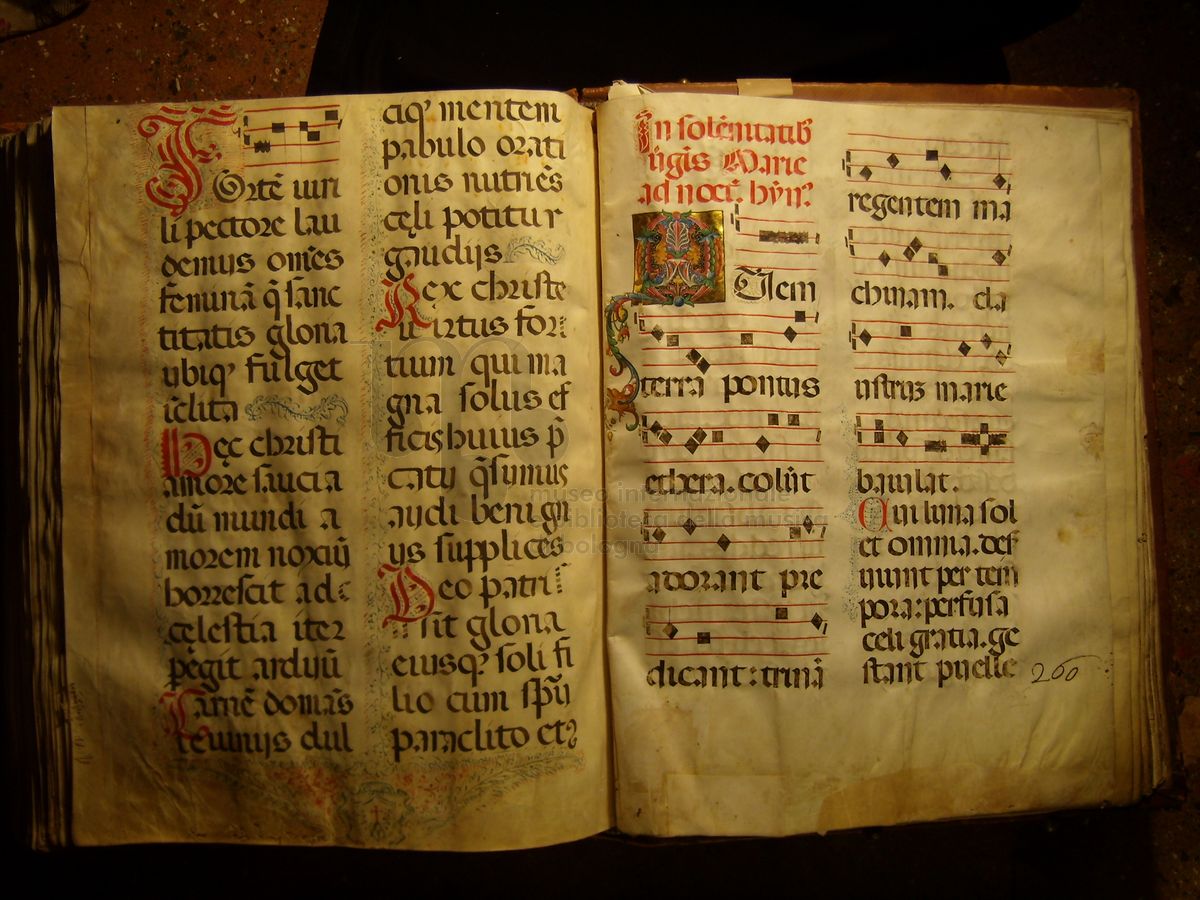 Fortē uiri
li pectore lau
demus om̄es
feminā q̄ sanc
titatis gloria
ubiqꝫ fulget
īclita
Hęc christi
amore saucia
dū mundi a
morem noxiū
horrescit ad c
ęlestia iter
pęgit arduū
Carnē domās
ieiunijs dul
ciqꝫ mentem
pabulo orati
onis nutriēs
cęli potitur
gaudijs
Rex christe
uirtus forti
tium qui ma
gna solus ef
ficis huius p̄
catu q̄sumus
audi benign
us supplices
Deo patri
sit gloria
eiusqꝫ soli fi
lio cum sp̄u
paraclito et
In solēnitatibꝫ
ṽgīs Marie
ad noct̄. hȳnꝰ.
QUem
terra pontus
ethera. colūt
adorant pre
dicant: trinā
regentem ma
chinam. cla
ustruꝫ marie
baiulat.
Cui luna sol
et omnia. des
uiunt per tem
pora: perfusa
celi gratia. ge
stant puelle
260
museo internazionale
biblioteca della musica
bologna